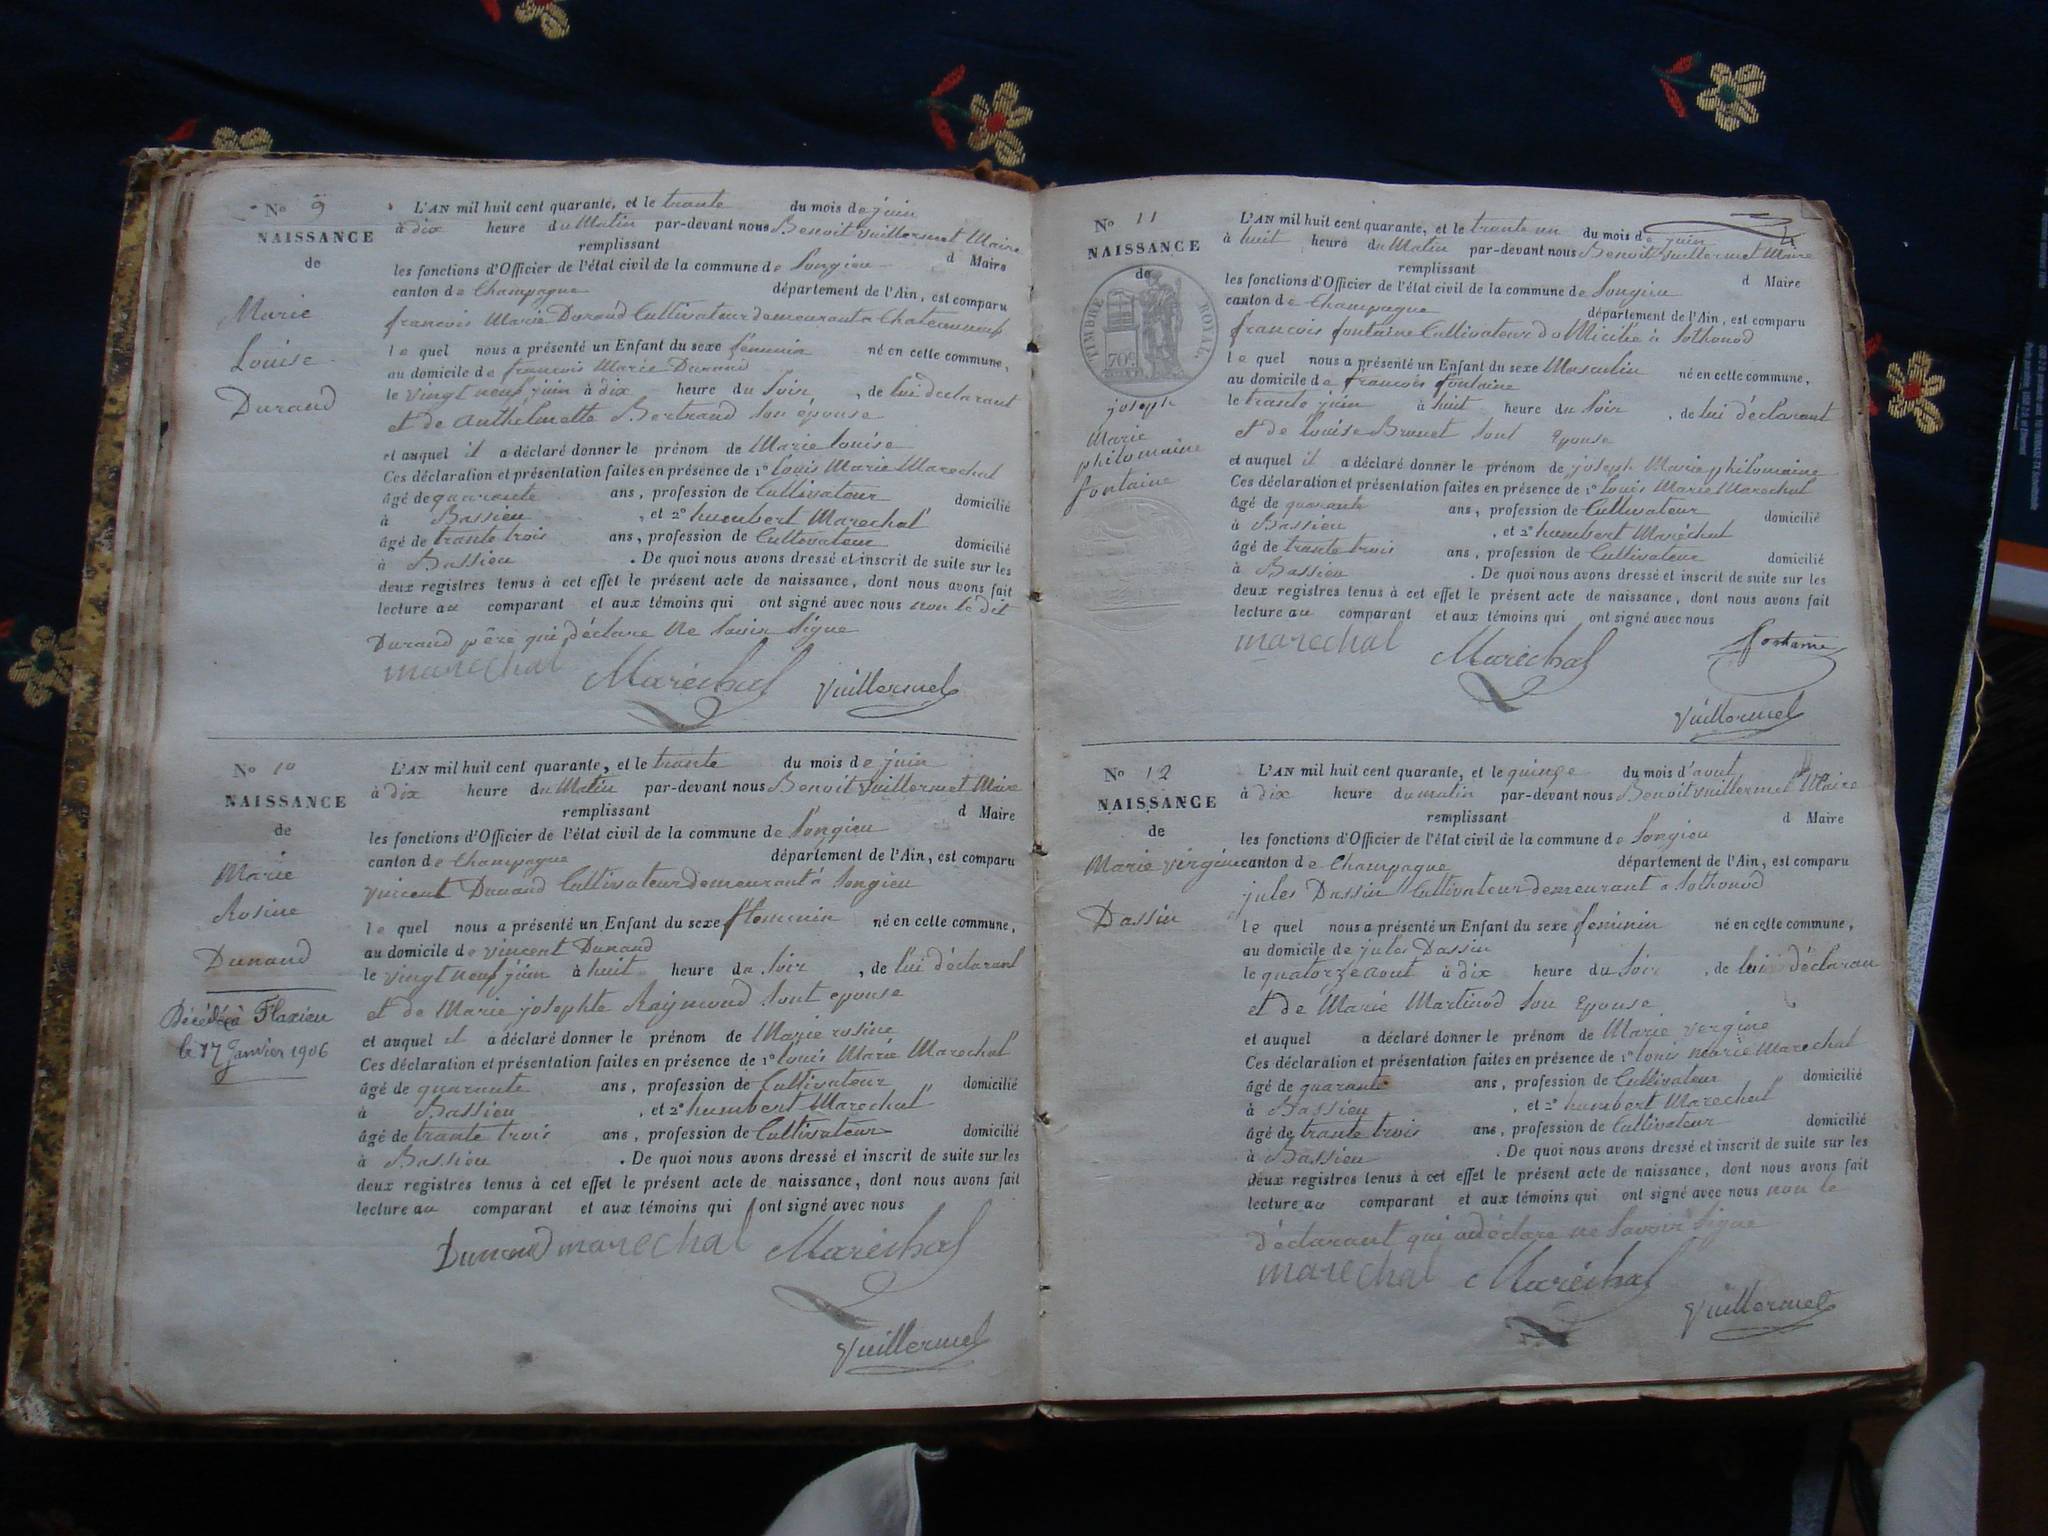 No 9
NAISSANCE
de
Marie
Louise
Durand
L'AN mil huit cent quarante, et le trante du mois de juin
à dix heure du Matin par-devant nous Benoit Vuillermet Maire
remplissant d Maire
les fonctions d'Officier de l'état civil de la commune de Songieu
canton de Champagne département de l'Ain, est comparu
francois Marie Durand Cultivateur demeurant a Chateauneuf
le quel nous a présenté un Enfant du sexe feminin né en cette commune,
au domicile de francois Marie Durand
le vingt neuf juin à dix heure du Soir, de lui declarant
et de Anthelmette Bertrand Son épouse
et auquel il a déclaré donner le prénom de Marie Louise
Ces déclaration et présentation faites en présence de 1º Louis Marie Marechal
âgé de quarante ans, profession de Cultivateur domicilié
à Bassieu, et 2º humbert Marechal
âgé de trante trois ans, profession de Cultivateur domicilié
à Bassieu. De quoi nous avons dressé et inscrit de suite sur les
deux registres tenus à cet effet le présent acte de naissance, dont nous avons fait
lecture au comparant et aux témoins qui ont signé avec nous non le dit
Durand père qui déclare ne Savoir Signe
marechal Maréchal Vuillermet
No 10
NAISSANCE
de
Marie
Rosine
Dunand
Décédée à Flaxieu
le 17 Janvier 1906
L'AN mil huit cent quarante, et le trante du mois de juin
à dix heure du Matin par-devant nous Benoit Vuillermet Maire
remplissant d Maire
les fonctions d'Officier de l'état civil de la commune de Songieu
canton de Champagne département de l'Ain, est comparu
vincent Dunand Cultivateur demeurant à Songieu
le quel nous a présenté un Enfant du sexe feminin né en cette commune,
au domicile de vincent Dunand
le vingt neuf juin à huit heure du Soir, de lui déclarant
et de Marie josephte Raymond Sont epouse
et auquel il a déclaré donner le prénom de Marie rosine
Ces déclaration et présentation faites en présence de 1º Louis Marie Marechal
âgé de quarante ans, profession de Cultivateur domicilié
à Bassieu, et 2º humbert Marechal
âgé de trante trois ans, profession de Cultivateur domicilié
à Bassieu. De quoi nous avons dressé et inscrit de suite sur les
deux registres tenus à cet effet le présent acte de naissance, dont nous avons fait
lecture au comparant et aux témoins qui ont signé avec nous
Dunand marechal Maréchal
Vuillermet
No 11
NAISSANCE
de
TIMBRE ROYAL
70c
joseph
Marie
philomaine
fontaine
L'AN mil huit cent quarante, et le trante un du mois de juin
à huit heure du Matin par-devant nous Benoit Vuillermet Maire
remplissant d Maire
les fonctions d'Officier de l'état civil de la commune de Songieu
canton de Champagne département de l'Ain, est comparu
francois fontaine Cultivateur do Micilié à Sothonod
le quel nous a présenté un Enfant du sexe Masculin né en cette commune,
au domicile de francois fontaine
le trante juin à huit heure du Soir, de lui déclarant
et de Louise Brunet Sont Epouse
et auquel il a déclaré donner le prénom de joseph Marie philomaine
Ces déclaration et présentation faites en présence de 1º Louis Marie Marechal
âgé de quarante ans, profession de Cultivateur domicilié
à Bassieu, et 2º humbert Maréchal
âgé de trante trois ans, profession de Cultivateur domicilié
à Bassieu. De quoi nous avons dressé et inscrit de suite sur les
deux registres tenus à cet effet le présent acte de naissance, dont nous avons fait
lecture au comparant et aux témoins qui ont signé avec nous
marechal Maréchal fontaine
Vuillermet
No 12
NAISSANCE
de
Marie virgine
Dassin
L'AN mil huit cent quarante, et le quinze du mois d'avout
à dix heure du matin par-devant nous Benoit Vuillermet Maire
remplissant d Maire
les fonctions d'Officier de l'état civil de la commune de Songieu
canton de Champagne département de l'Ain, est comparu
jules Dassin Cultivateur demeurant a Sothonod
le quel nous a présenté un Enfant du sexe feminin né en cette commune,
au domicile de jules Dassin
le quatorze aout à dix heure du Soir, de lui déclaran
et de Marie Martinod Son Epouse
et auquel a déclaré donner le prénom de Marie vergine
Ces déclaration et présentation faites en présence de 1º Louis Marie Marechal
âgé de quarante ans, profession de Cultivateur domicilié
à Bassieu, et 2º humbert Marechal
âgé de trante trois ans, profession de Cultivateur domicilié
à Bassieu. De quoi nous avons dressé et inscrit de suite sur les
deux registres tenus à cet effet le présent acte de naissance, dont nous avons fait
lecture au comparant et aux témoins qui ont signé avec nous non le
déclarant qui a déclare ne Savoir Signe
marechal Maréchal Vuillermet